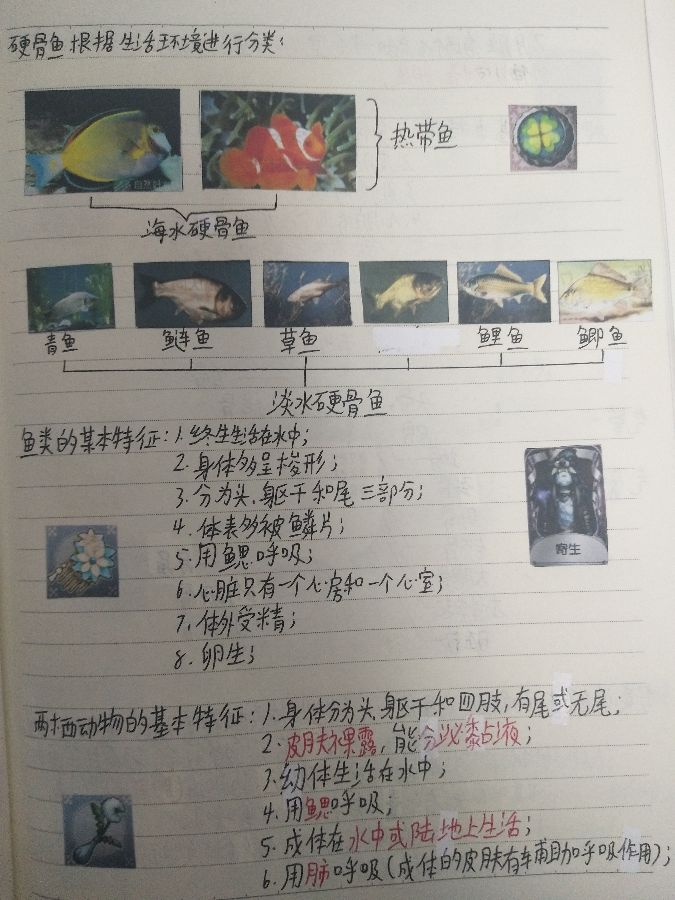 硬骨鱼根据生活环境进行分类:
热带鱼
海水硬骨鱼
青鱼 鲢鱼 草鱼 鲤鱼 鲫鱼
淡水硬骨鱼
鱼类的基本特征:1.终生生活在水中;
2.身体多呈梭形;
3.分为头、躯干和尾三部分;
4.体表多被鳞片;
5.用鳃呼吸;
寄生
6.心脏只有一个心房和一个心室;
7.体外受精;
8.卵生;
两栖动物的基本特征:1.身体分为头、躯干和四肢,有尾或无尾;
2.皮肤裸露,能分泌黏液;
3.幼体生活在水中;
4.用鳃呼吸;
5.成体在水中或陆地上生活;
6.用肺呼吸(成体的皮肤有辅助呼吸作用);